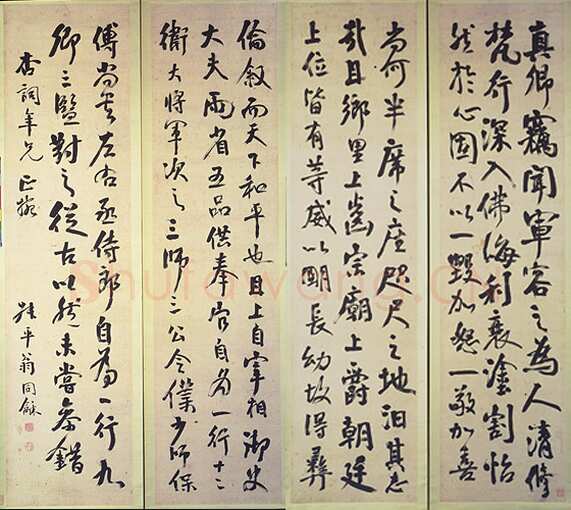 真卿竊聞軍容之為人清修
梵行深入佛海利衰塗割怡
然於心固不以一毀加怒一敬加喜
尚何半席之座咫尺之地汨其志
哉且鄉里上齒宗廟上爵朝廷
上位皆有等威以明長幼故得彝
倫敘而天下和平也且上自宰相御史
大夫兩省五品供奉官自為一行十二
衛大將軍次之三師三公令僕少師保
傅尚書左右丞侍郎自為一行九
卿三監對之從古以然未嘗參錯
杏詞年兄正
叔平翁同龢
Shufawang.Cn